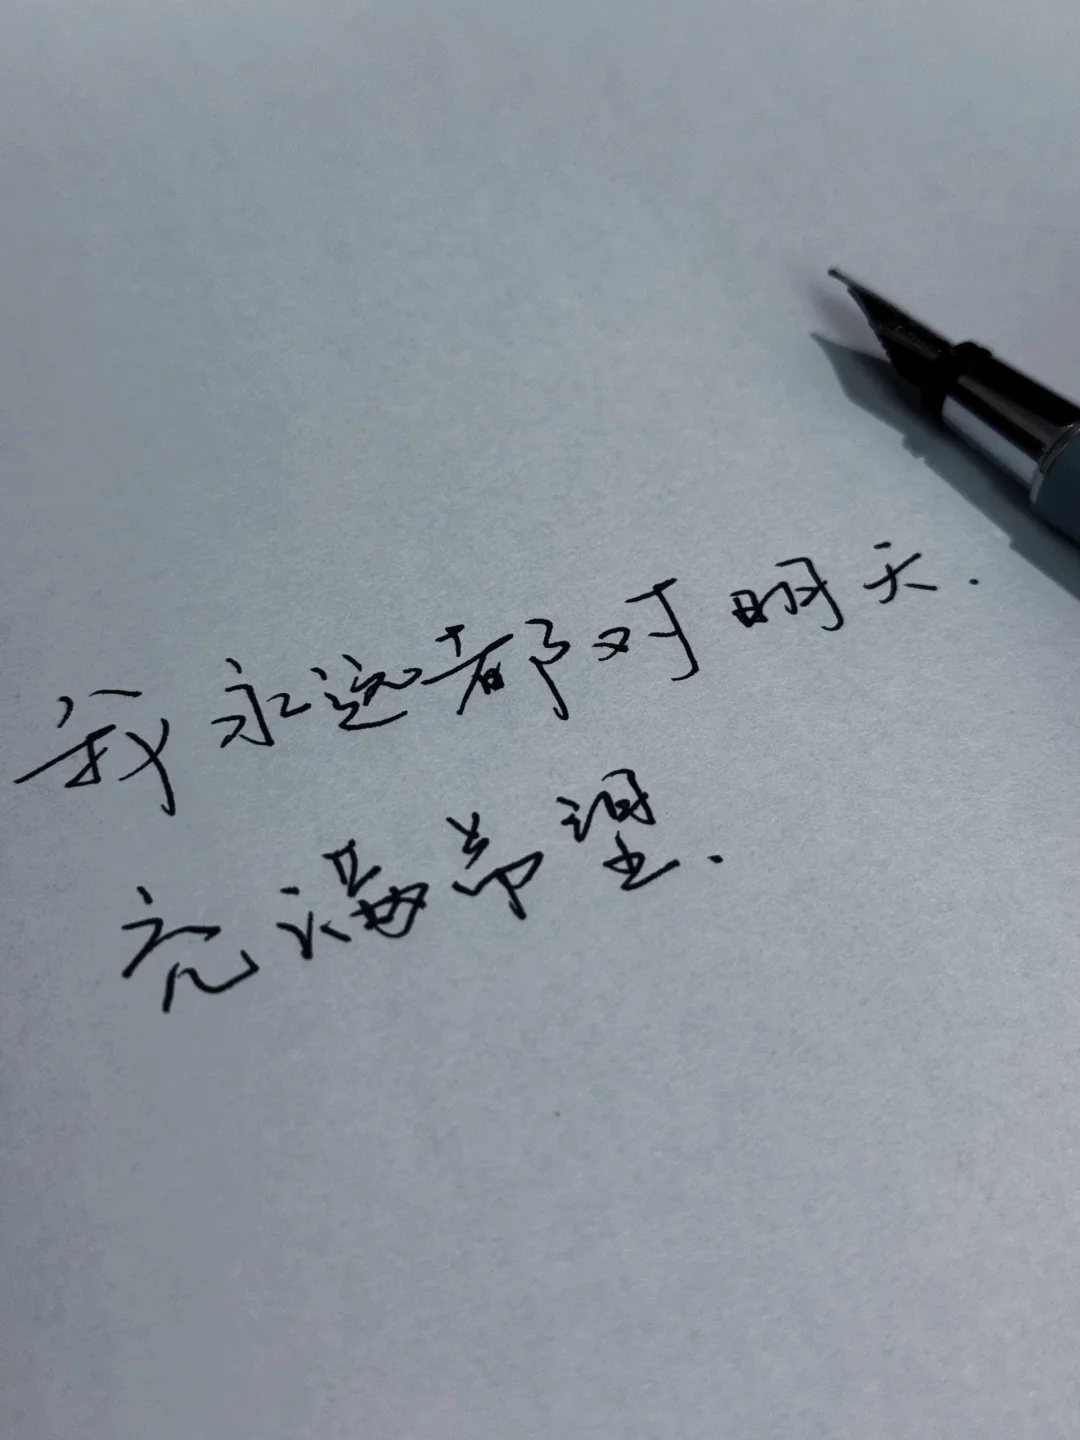 我永远都对明天.
充满希望.